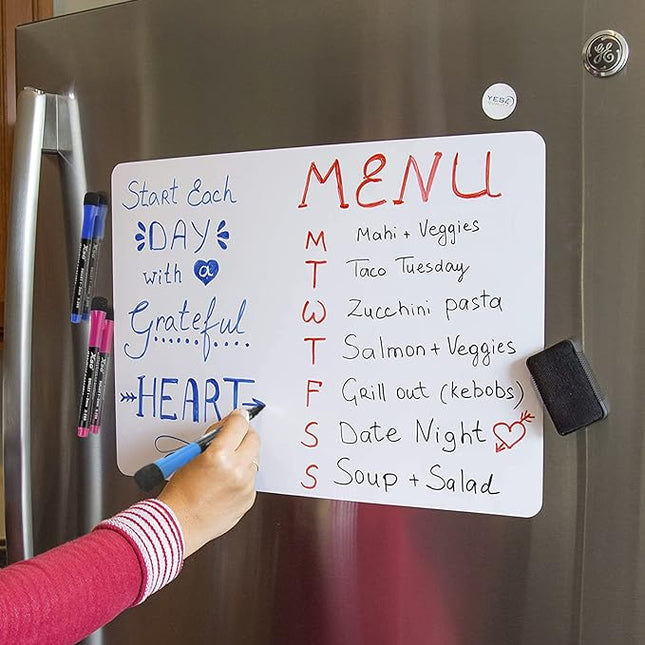 Start Each
DAY
with a
Grateful
HEART
MENU
M Mahi + Veggies
T Taco Tuesday
W Zucchini pasta
T Salmon + Veggies
F Grill out (kebobs)
S Date Night
S Soup + Salad
YES4
GE